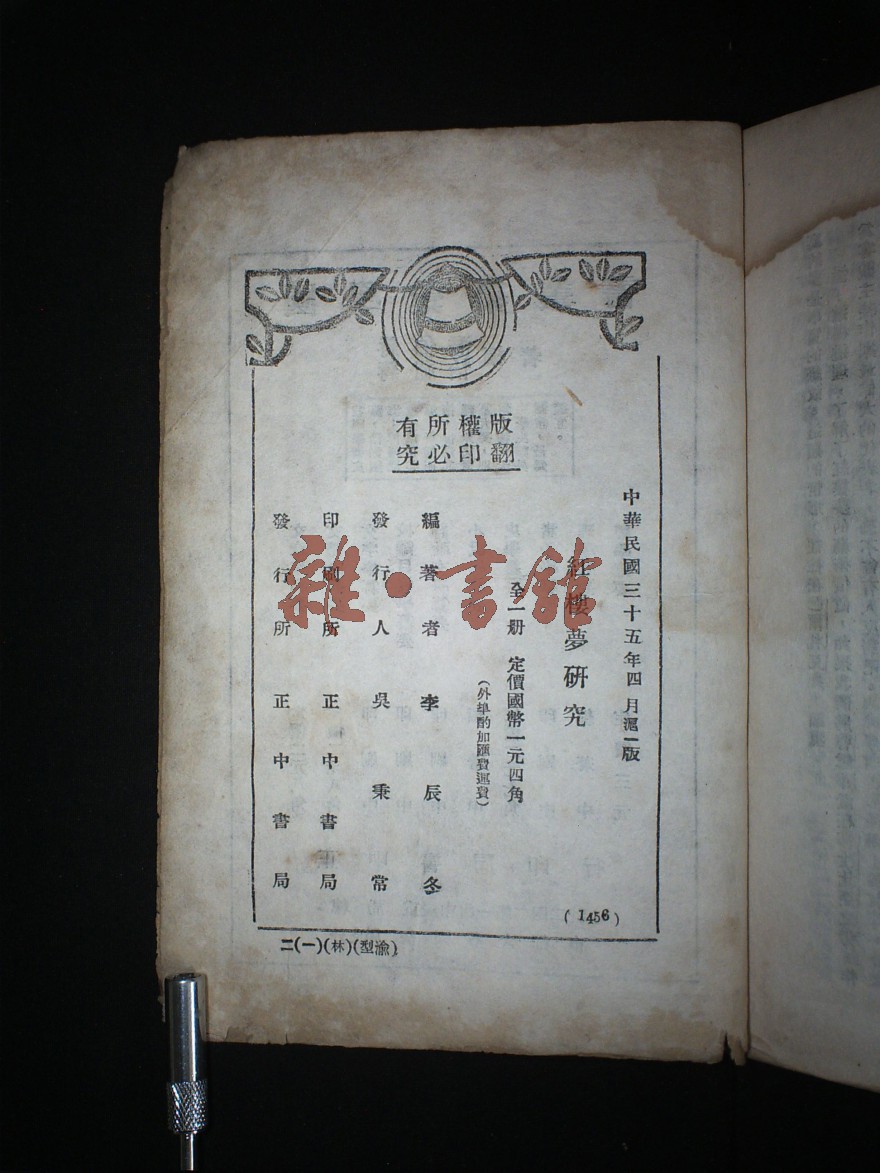 版權所有
翻印必究
中華民國三十五年四月滬一版
紅樓夢研究
全一册 定價國幣一元四角
(外埠酌加匯費運費)
編著者李辰冬
發行人吳秉常
印刷所正中書局
發行所正中書局
(1456)
二(一)(林)(渝型)
雜·書館